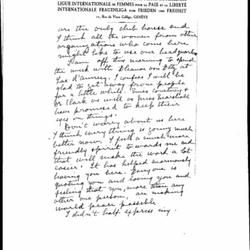 LIGUE INTERNATIONALE DE FEMMES POUR LA PAIX ET LA LIBERTÉ
INTERNATIONALE FRAUENLIGA FÜR FRIEDEN UND FREIHEIT
12, Rue du Vieux Collège, GENÈVE
are the only club house and
I think all the women from other
organizations who come here
might like to use our headquarters
I am off this morning to spend
the week with
Lac d'Annecy. I confess I will be
glad to get away from people
for a little while. Miss Courtney
Clark as well as Miss Marshall
promised to keep their
eyes on things.
Don't worry about us here
I think everything is going much
better now. I felt a much more
friendly spirit towards me and
that will make the work a lot
easier. It has helped enormously
having you here. Everyone is
quoting you and loving you and
feeling that you, more than any
other one person, are making
world peace possible.
I didn't half express my